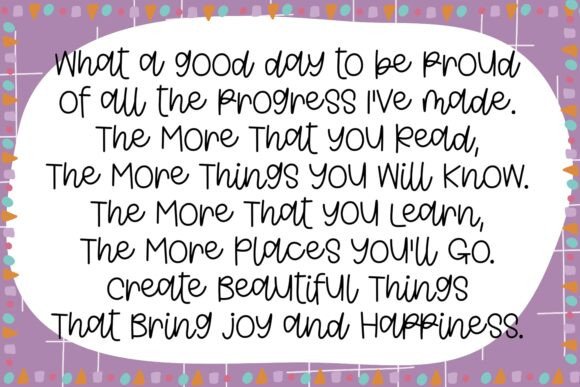 What a good day to be proud
of all the progress I've made.
The More That you Read,
The More Things you Will Know.
The More That you Learn,
The More Places you'll Go.
Create Beautiful Things
That Bring joy and Happiness.